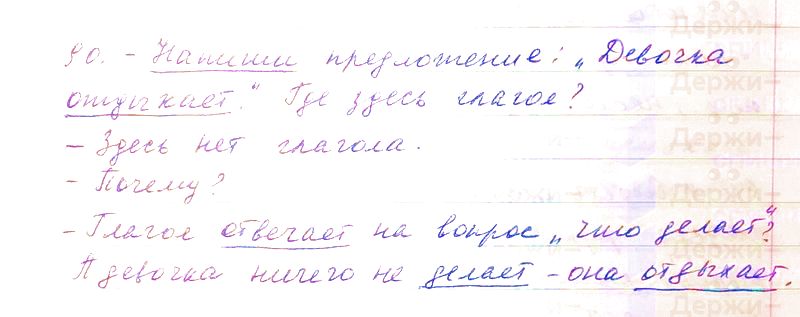 90. - Напиши предложение: „Девочка
отдыхает." Где здесь глагол?
- Здесь нет глагола.
- Почему?
- Глагол отвечает на вопрос „что делает"?
А девочка ничего не делает - она отдыхает.
Держи-
Держи-
Держи-
Держи-
Держи-
Держи-